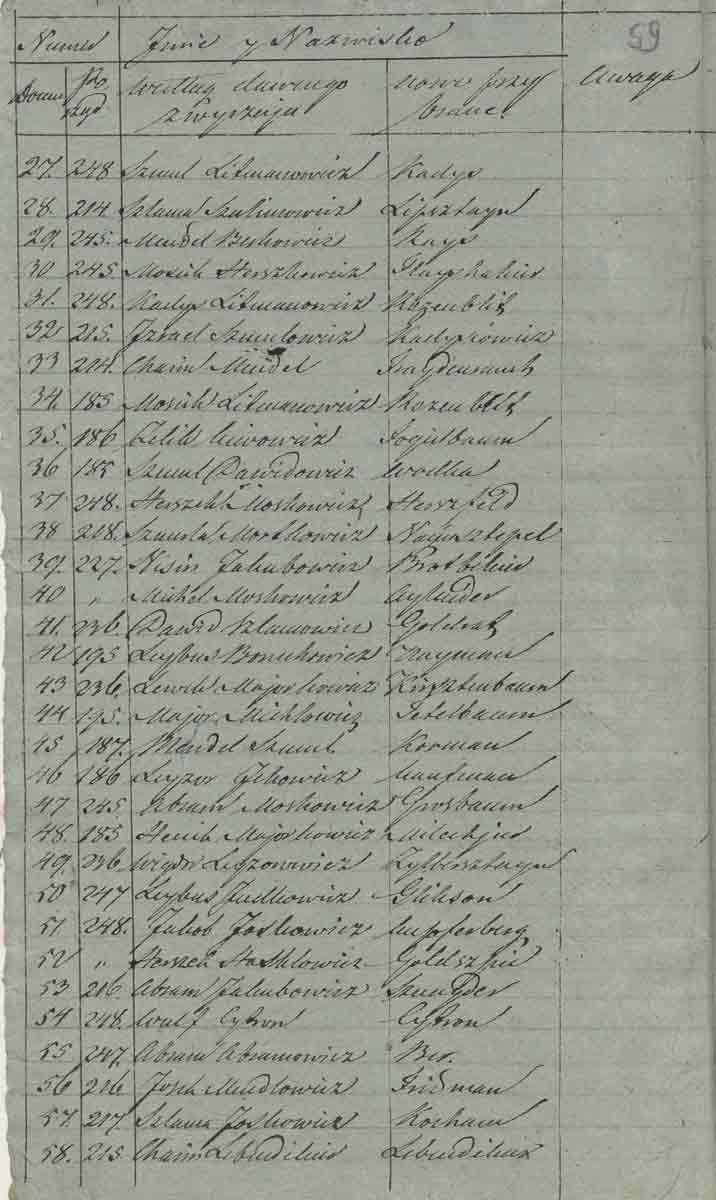 59
Numer Imie y Nazwisko
Domu według dawnego nowo przy Uwaga
zwyczaju brane
27. 248 Szmul Litmanowicz Kadys
28. 214. Szlama Szulimowicz Lipsztayn
29. 245. Mendel Berkowicz Rays
30 245 Mosiek Herszkowicz
31. 248. Kadys Litmanowicz Rozenblit
32 215. Izrael Szmulowicz Kadysiowicz
33 204. Chaim Mendel
34. 185 Mosiek Litmanowicz Rozenblit
35. 186 Zelik Fogielbaum
36 185 Szmul Dawidowicz Wodka
37 248. Herszek Moskowicz Herszfeld
38 218. Szmerla Mortkowicz
39. 227. Nisin Jakubowicz
40 " Michel Moskowicz
41. 236. Dawid Szlamowicz Goldrat
42 195 Leybus Boruchowicz Nayman
43 236. Lewek Majorkowicz Kirsztenbaum
44 195. Major Michlowicz Tetelbaum
45 187. Mendel Szmul Korman
46 186 Leyzor Ichowicz Kaufman
47 245. Abram Moskowicz Grosbaum
48. 185 Henich Majorkowicz
49. 236. Wigdor Leyzorowicz Zylbersztayn
50 247 Leybus Judkowicz Glikson
51 248. Jakob Joskowicz Kupferberg
52 " Herszek Goldszpic
53 216 Abram Jakubowicz Sznayder
54 248. Wulf Cytron Cytron
55 247. Abram Abramowicz Ber.
56 216 Josek Mendlowicz Fridman
57. 217. Szlama Joskowicz Kocham
58. 215 Chaim Lebendiker Lebendiker